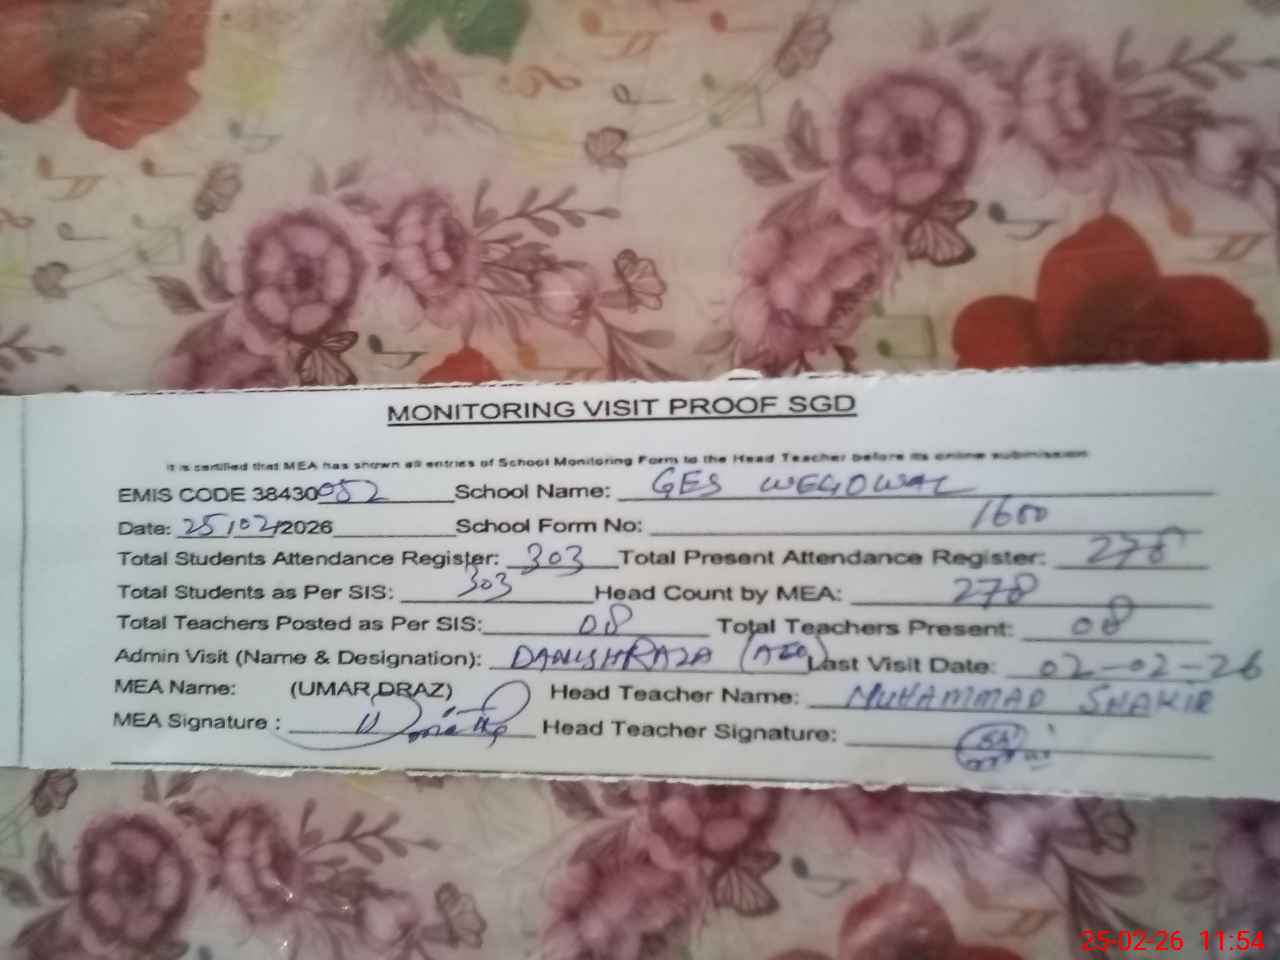 MONITORING VISIT PROOF SGD
It is certified that MEA has shown all entries of School Monitoring Form to the Head Teacher before its online submission
EMIS CODE 38430052 School Name: GES WEGOWAL
Date: 25/02/2026 School Form No: 1600
Total Students Attendance Register: 303 Total Present Attendance Register: 278
Total Students as Per SIS: 303 Head Count by MEA: 278
Total Teachers Posted as Per SIS: 08 Total Teachers Present: 08
Admin Visit (Name & Designation): DANISH RAZA (AEO) Last Visit Date: 02-02-26
MEA Name: (UMAR DRAZ) Head Teacher Name: MUHAMMAD SHAKIR
MEA Signature : Head Teacher Signature:
25-02-26 11:54